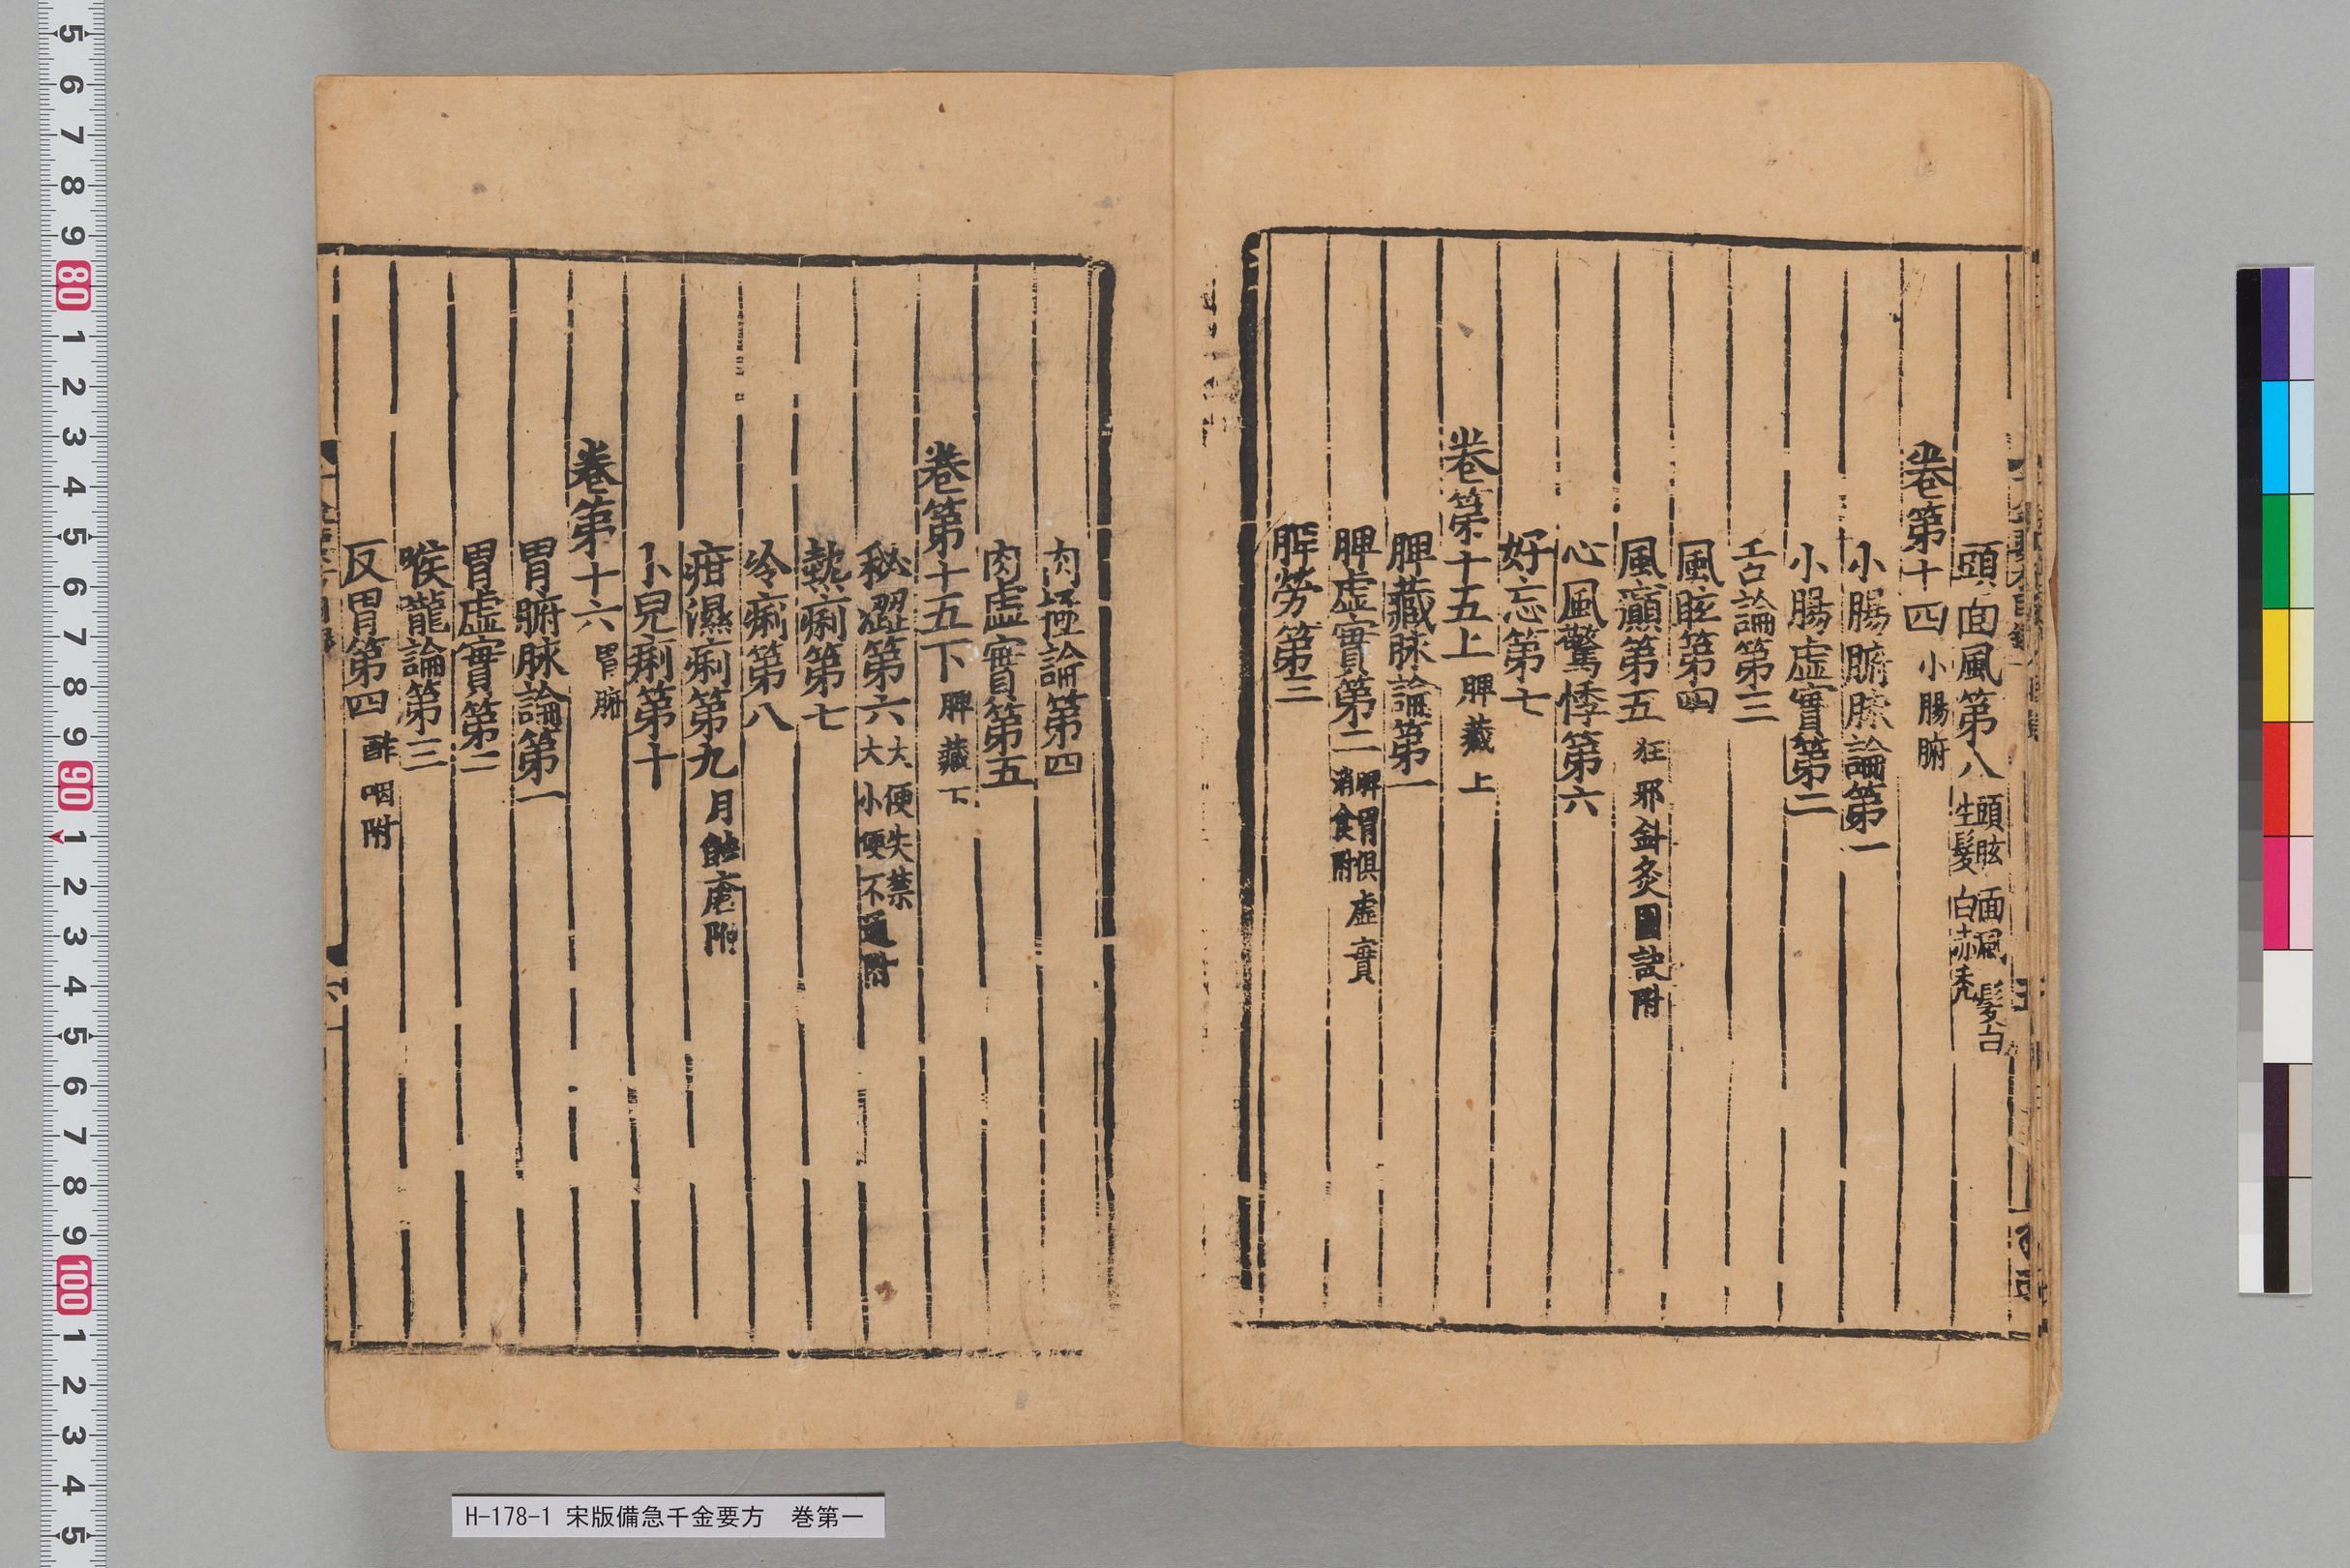 頭面風第八 頭眩 面風 髮白 生髮 白赤禿
卷第十四 小腸腑
小腸腑脉論第一
小腸虛實第二
舌論第三
風眩第四
風癲第五 狂邪 針灸圖訣附
心風驚悸第六
好忘第七
卷第十五上 脾藏上
脾藏脉論第一
脾虛實第二 脾胃俱虛實 消食附
脾勞第三
肉極論第四
肉虛實第五
卷第十五下 脾藏下
秘澀第六 大便失禁 大小便不通附
熱痢第七
冷痢第八
疳濕痢第九 月蝕瘡附
小兒痢第十
卷第十六 胃腑
胃腑脉論第一
胃虛實第二
喉嚨論第三
反胃第四 醋咽附
H-178-1 宋版備急千金要方 巻第一
5 6 7 8 9 80 1 2 3 4 5 6 7 8 9 90 1 2 3 4 5 6 7 8 9 100 1 2 3 4 5